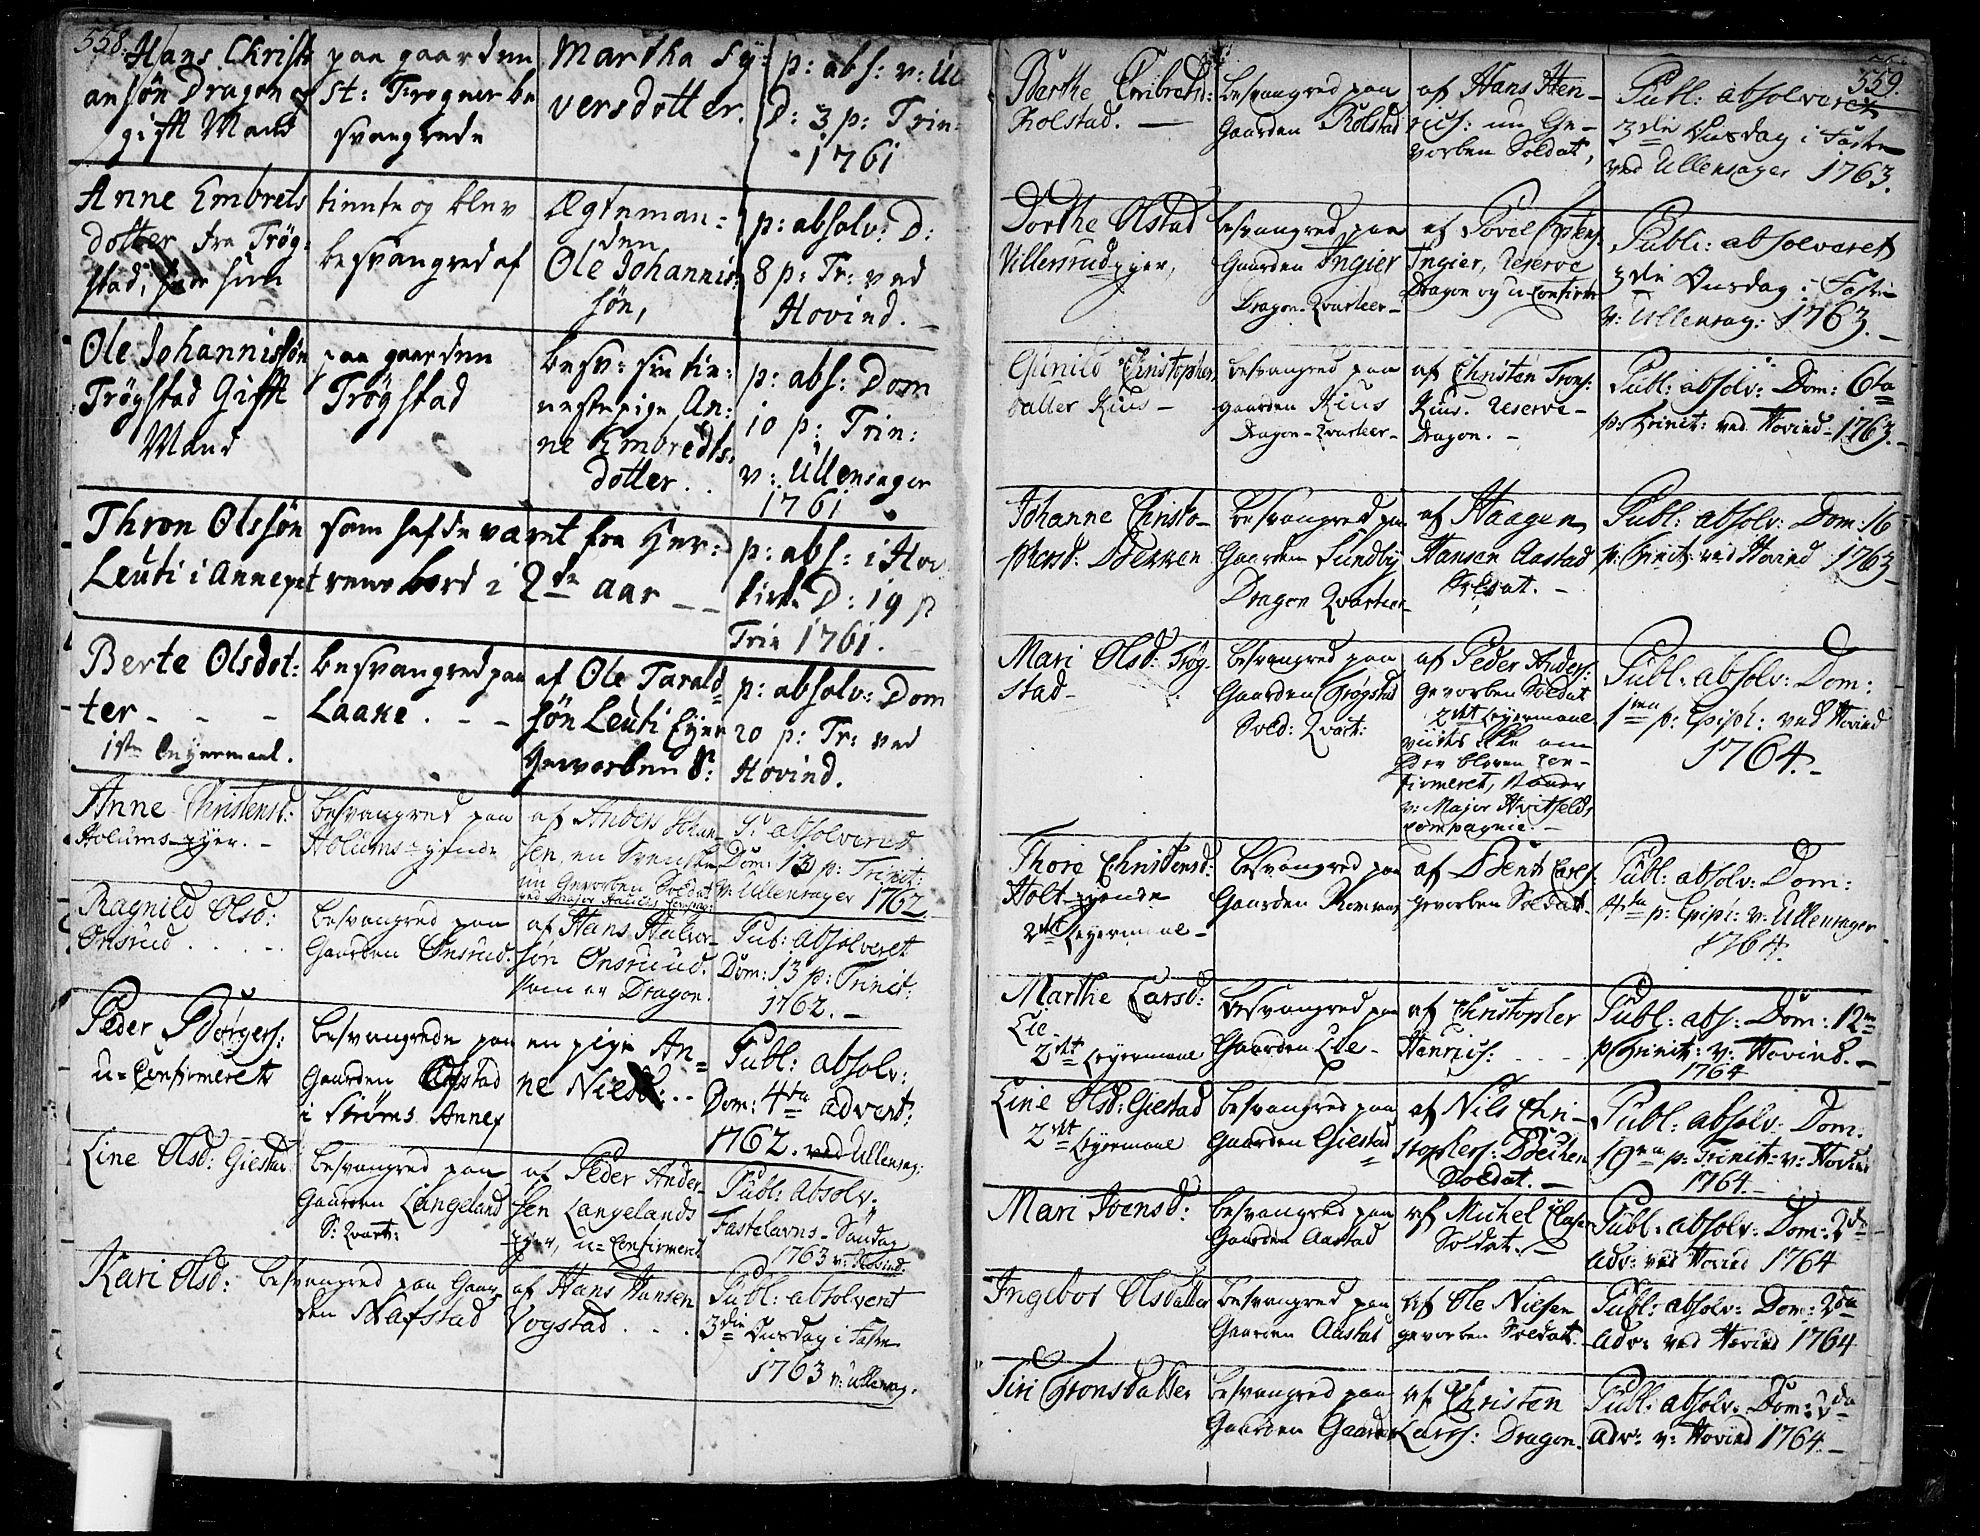 558.
Hans Christi
ansøn Dragon og
gift Mand
paa gaarden
St: Trogner be
svangrede
Martha Sy:
versdotter.
p: abs: v: Ul
D: 3 p: Trin:
1761
Anne Embrets
dotter fra Trøg-
stad, som hun
tiente og blev
besvangred af
Ægteman-
den
Ole Johannis
søn,
p: absolv: D:
8 p: Tr: ved
Hovind.
Ole Johannissøn
Trøgstad Gift
Mand
paa gaarden
Trøgstad
besv: sin tie-
neste pige An:
ne Embredts:
dotter.
p: abs: Dom
10 p: Trin:
v: Ullensager
1761
Thron Olssøn
Leuti i Annext
som hafde været fra Her-
rens bord i 2de aar
p: abs: i Hov
kirke D: 19 p
Trin 1761.
Berte Olsdot:
ter
1ste Leyermaal.
besvangred paa
Laake.
af Ole Tarald-
søn Leuti Eyer
Gevorben S:
p: absolv: Dom
20 p: Tr: ved
Hovind.
Anne Christensd:
Holums-eyer.
besvangred paa
Holums-eyende
af Anders Johan-
sen, en Svenske
nu Gevorben Soldat
ved Major Compag:
P: absolvered
Dom: 13 p: Trinit:
v: Ullensager 1762
Ragnild Olsd:
Onsrud
besvangred paa
Gaarden Onsrud.
af Hans Halvor-
søn Onsruud.
som er Dragon.
Pub: absolveret
Dom: 13 p: Trinit:
1762.
Peder Børgers:
u-Confirmeret
besvangrede paa
Gaarden Afstad
i Strøms Annex
en pige An-
ne Nielsd:
Publ: absolv:
Dom: 4ta advent:
1762. ved Ullensag:
Line Olsd: Giestad
besvangred paa
Gaarden Langeland
S: Qvart:
af Peder Ander-
sen Langelands
eyer, u-Confirmert
Publ: Absolv:
Fastelavns-Søndag
1763 v: Hovind.
Kari Olsd:
besvangred paa Gaar-
den Nafstad
af Hans Hansen
Vogstad
Publ: absolvert
3die Onsdag i Faste
1763 v: Ullensag.
559.
Barthe Embretsd:
Kolstad.
besvangred paa
Gaarden Kolstad
af Hans Hen-
rics: nu Ge-
vorben Soldat,
Publ: absolveret
3die Onsdag i Faste
ved Ullensager 1763.
Dorthe Olstad
Villersrud eyer,
besvangred paa
Gaarden Ingier
Dragon-Qvarteer
af Povel
Ingier, Reserve
Dragon og u-Confirm
Publ: absolveret
3die Onsdag i Faste
v: Ullensag: 1763.
Gunild Christopher
datter Kius
besvangred paa
gaarden Kius
Dragon-Qvarteer
af Christen Trons:
Kius. Reserve-
Dragon.
Publ: absolv: Dom: 6ta
p: Trinit: ved Hovind 1763.
Johanne Christo-
phersd: Bekken
besvangred paa
Gaarden Lundby
Dragon Qvarteer
af Haagen
Hansen Aastad
Soldat.
Publ: absolv: Dom: 16
p: Trinit: ved Hovind 1763
Mari Olsd: Trøg-
stad
besvangred paa
Gaarden Trøgstad
Sold: Qvart:
af Peder Anders:
gevorben Soldat
2det Leyermaal
viistes ikke om
Der bleven con-
firmeret, staaer
v: Major Hvitfelds
compagnie.
Publ: absolv: Dom:
1ma p: Epiph: ved Hovind
1764.
Thore Christensd:
Holt-eyende
2det Leyermaal
besvangred paa
Gaarden
af Bent Lars:
gevorben Soldat
Publ: absolv: Dom:
4ta p: Epiph: v: Ullensager
1764.
Marthe Larsd:
Lie
2det Leyermaal
besvangred paa
Gaarden Lie
af Christopher
Henrics:
Publ: abs: Dom: 12ma
p: Trinit: v: Hovind.
1764
Line Olsd: Giestad
2det Leyermaal
besvangred paa
Gaarden Giestad
af Nils Chri-
stophers:
Soldat.
Publ: absolv: Dom:
19na p: Trinit: v: Hovind
1764.
Mari Joensd:
besvangred paa
Gaarden Aastad
af Michel
Soldat.
Publ: absolv: Dom: 2da
adv: ved Hovind 1764
Ingebor Olsdatter
besvangred paa
Gaarden Aastad
af Ole Nielsen
gevorben Soldat.
Publ: absolv: Dom: 2da
adv: ved Hovind 1764
Siri Tronsdatter
besvangred paa
Gaarden Gaarder
af Christen
Lars: Dragon.
Publ: absolv: Dom: 2da
adv: v: Hovind 1764.